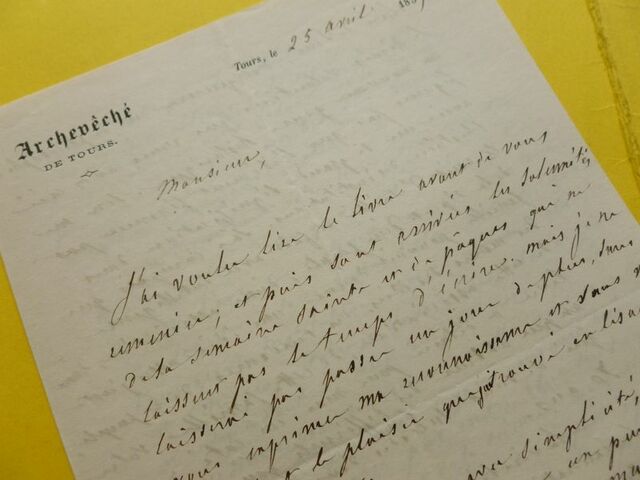 Tours, le 25 avril 185
Archevêché
DE TOURS.
Monsieur,
J'ai voulu lire le livre avant de vous
remercier; et puis sont arrivées les solennités
de la semaine sainte et de pâques qui ne
laissent pas le temps d'écrire. mais je ne
laisserai pas passer un jour de plus, sans
vous exprimer ma reconnaissance et vous
le plaisir que j'ai trouvé en lisa
simplicité,
un pu